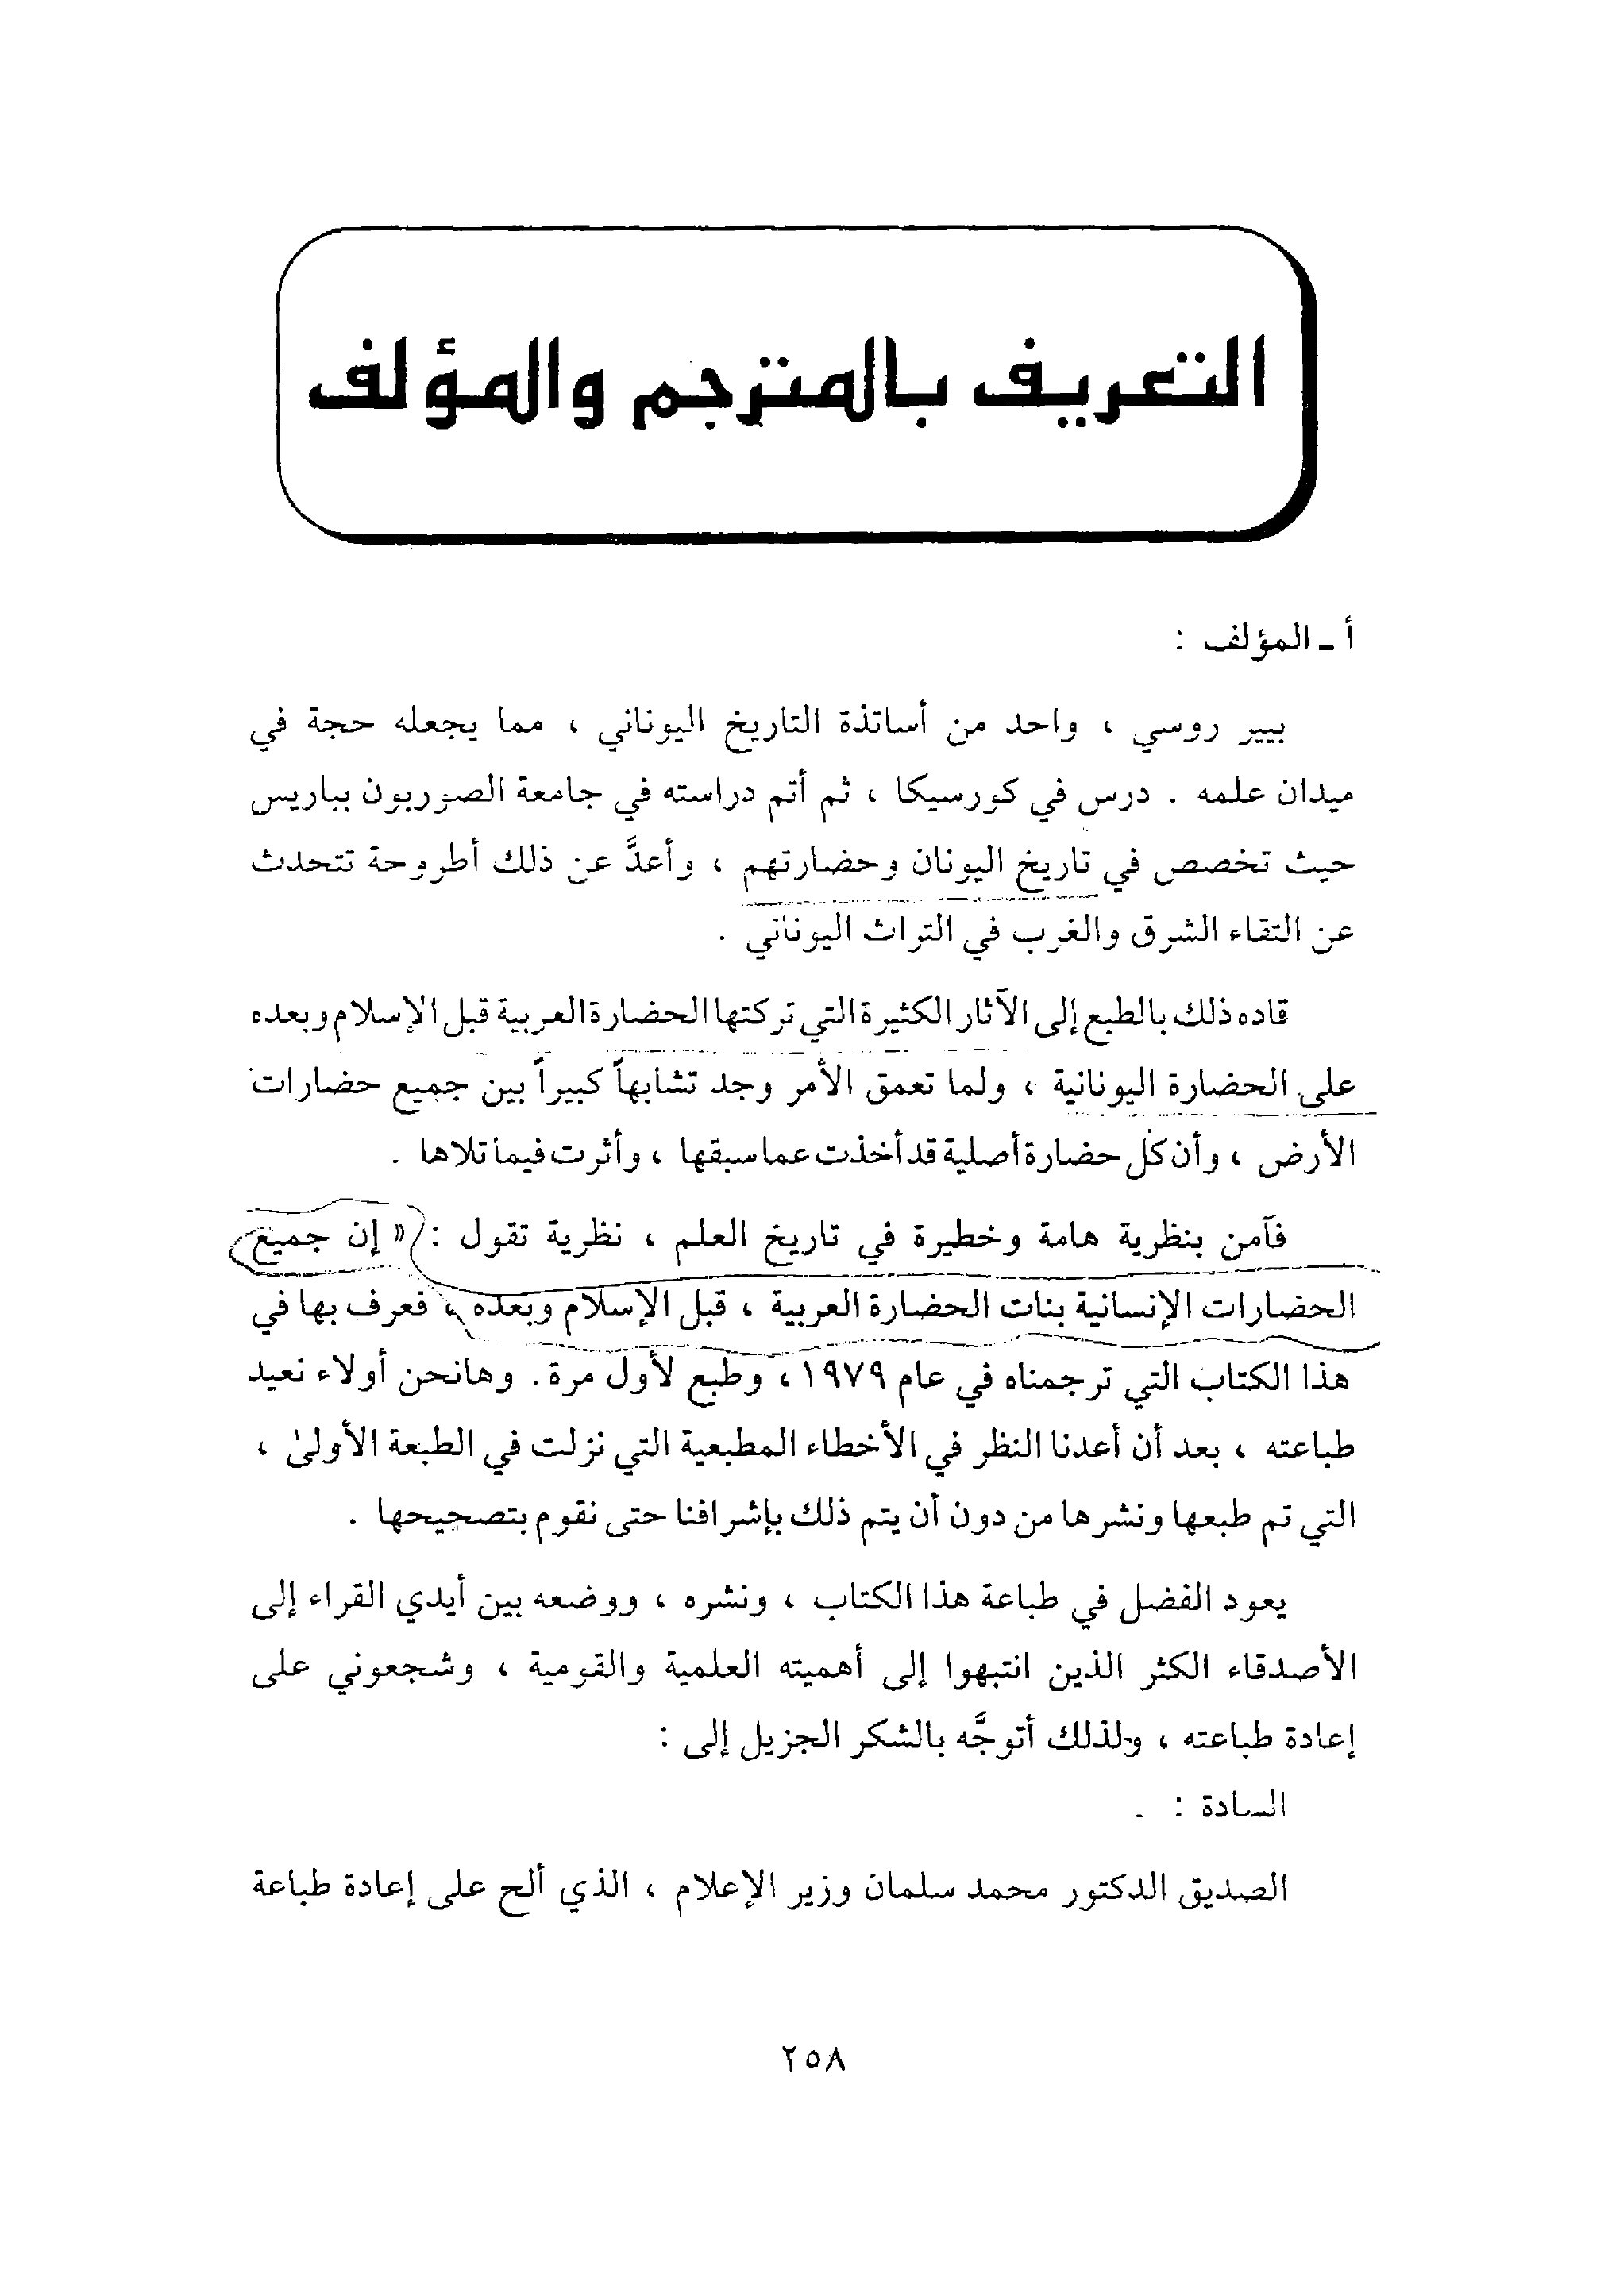 التعريف بالمترجم والمؤلف
أ ـ المؤلف :
بيير روسي ، واحد من أساتذة التاريخ اليوناني ، مما يجعله حجة في
ميدان علمه . درس في كورسيكا ، ثم أتم دراسته في جامعة الصوربون بباريس
حيث تخصص في تاريخ اليونان وحضارتهم ، وأعدَّ عن ذلك أطروحة تتحدث
عن التقاء الشرق والغرب في التراث اليوناني .
قاده ذلك بالطبع إلى الآثار الكثيرة التي تركتها الحضارة العربية قبل الإسلام وبعده
على الحضارة اليونانية ، ولما تعمق الأمر وجد تشابهاً كبيراً بين جميع حضارات
الأرض ، وأن كل حضارة أصلية قد أخذت عما سبقها ، وأثرت فيما تلاها .
فآمن بنظرية هامة وخطيرة في تاريخ العلم ، نظرية تقول : « إن جميع
الحضارات الإنسانية بنات الحضارة العربية ، قبل الإسلام وبعده ، فعرف بها في
هذا الكتاب التي ترجمناه في عام ١٩٧٩ ، وطبع لأول مرة . وهانحن أولاء نعيد
طباعته ، بعد أن أعدنا النظر في الأخطاء المطبعية التي نزلت في الطبعة الأولىٰ ،
التي تم طبعها ونشرها من دون أن يتم ذلك بإشرافنا حتى نقوم بتصحيحها .
يعود الفضل في طباعة هذا الكتاب ، ونشره ، ووضعه بين أيدي القراء إلى
الأصدقاء الكثر الذين انتبهوا إلى أهميته العلمية والقومية ، وشجعوني على
إعادة طباعته ، ولذلك أتوجَّه بالشكر الجزيل إلى :
السادة : .
الصديق الدكتور محمد سلمان وزير الإعلام ، الذي ألح على إعادة طباعة
٢٥٨